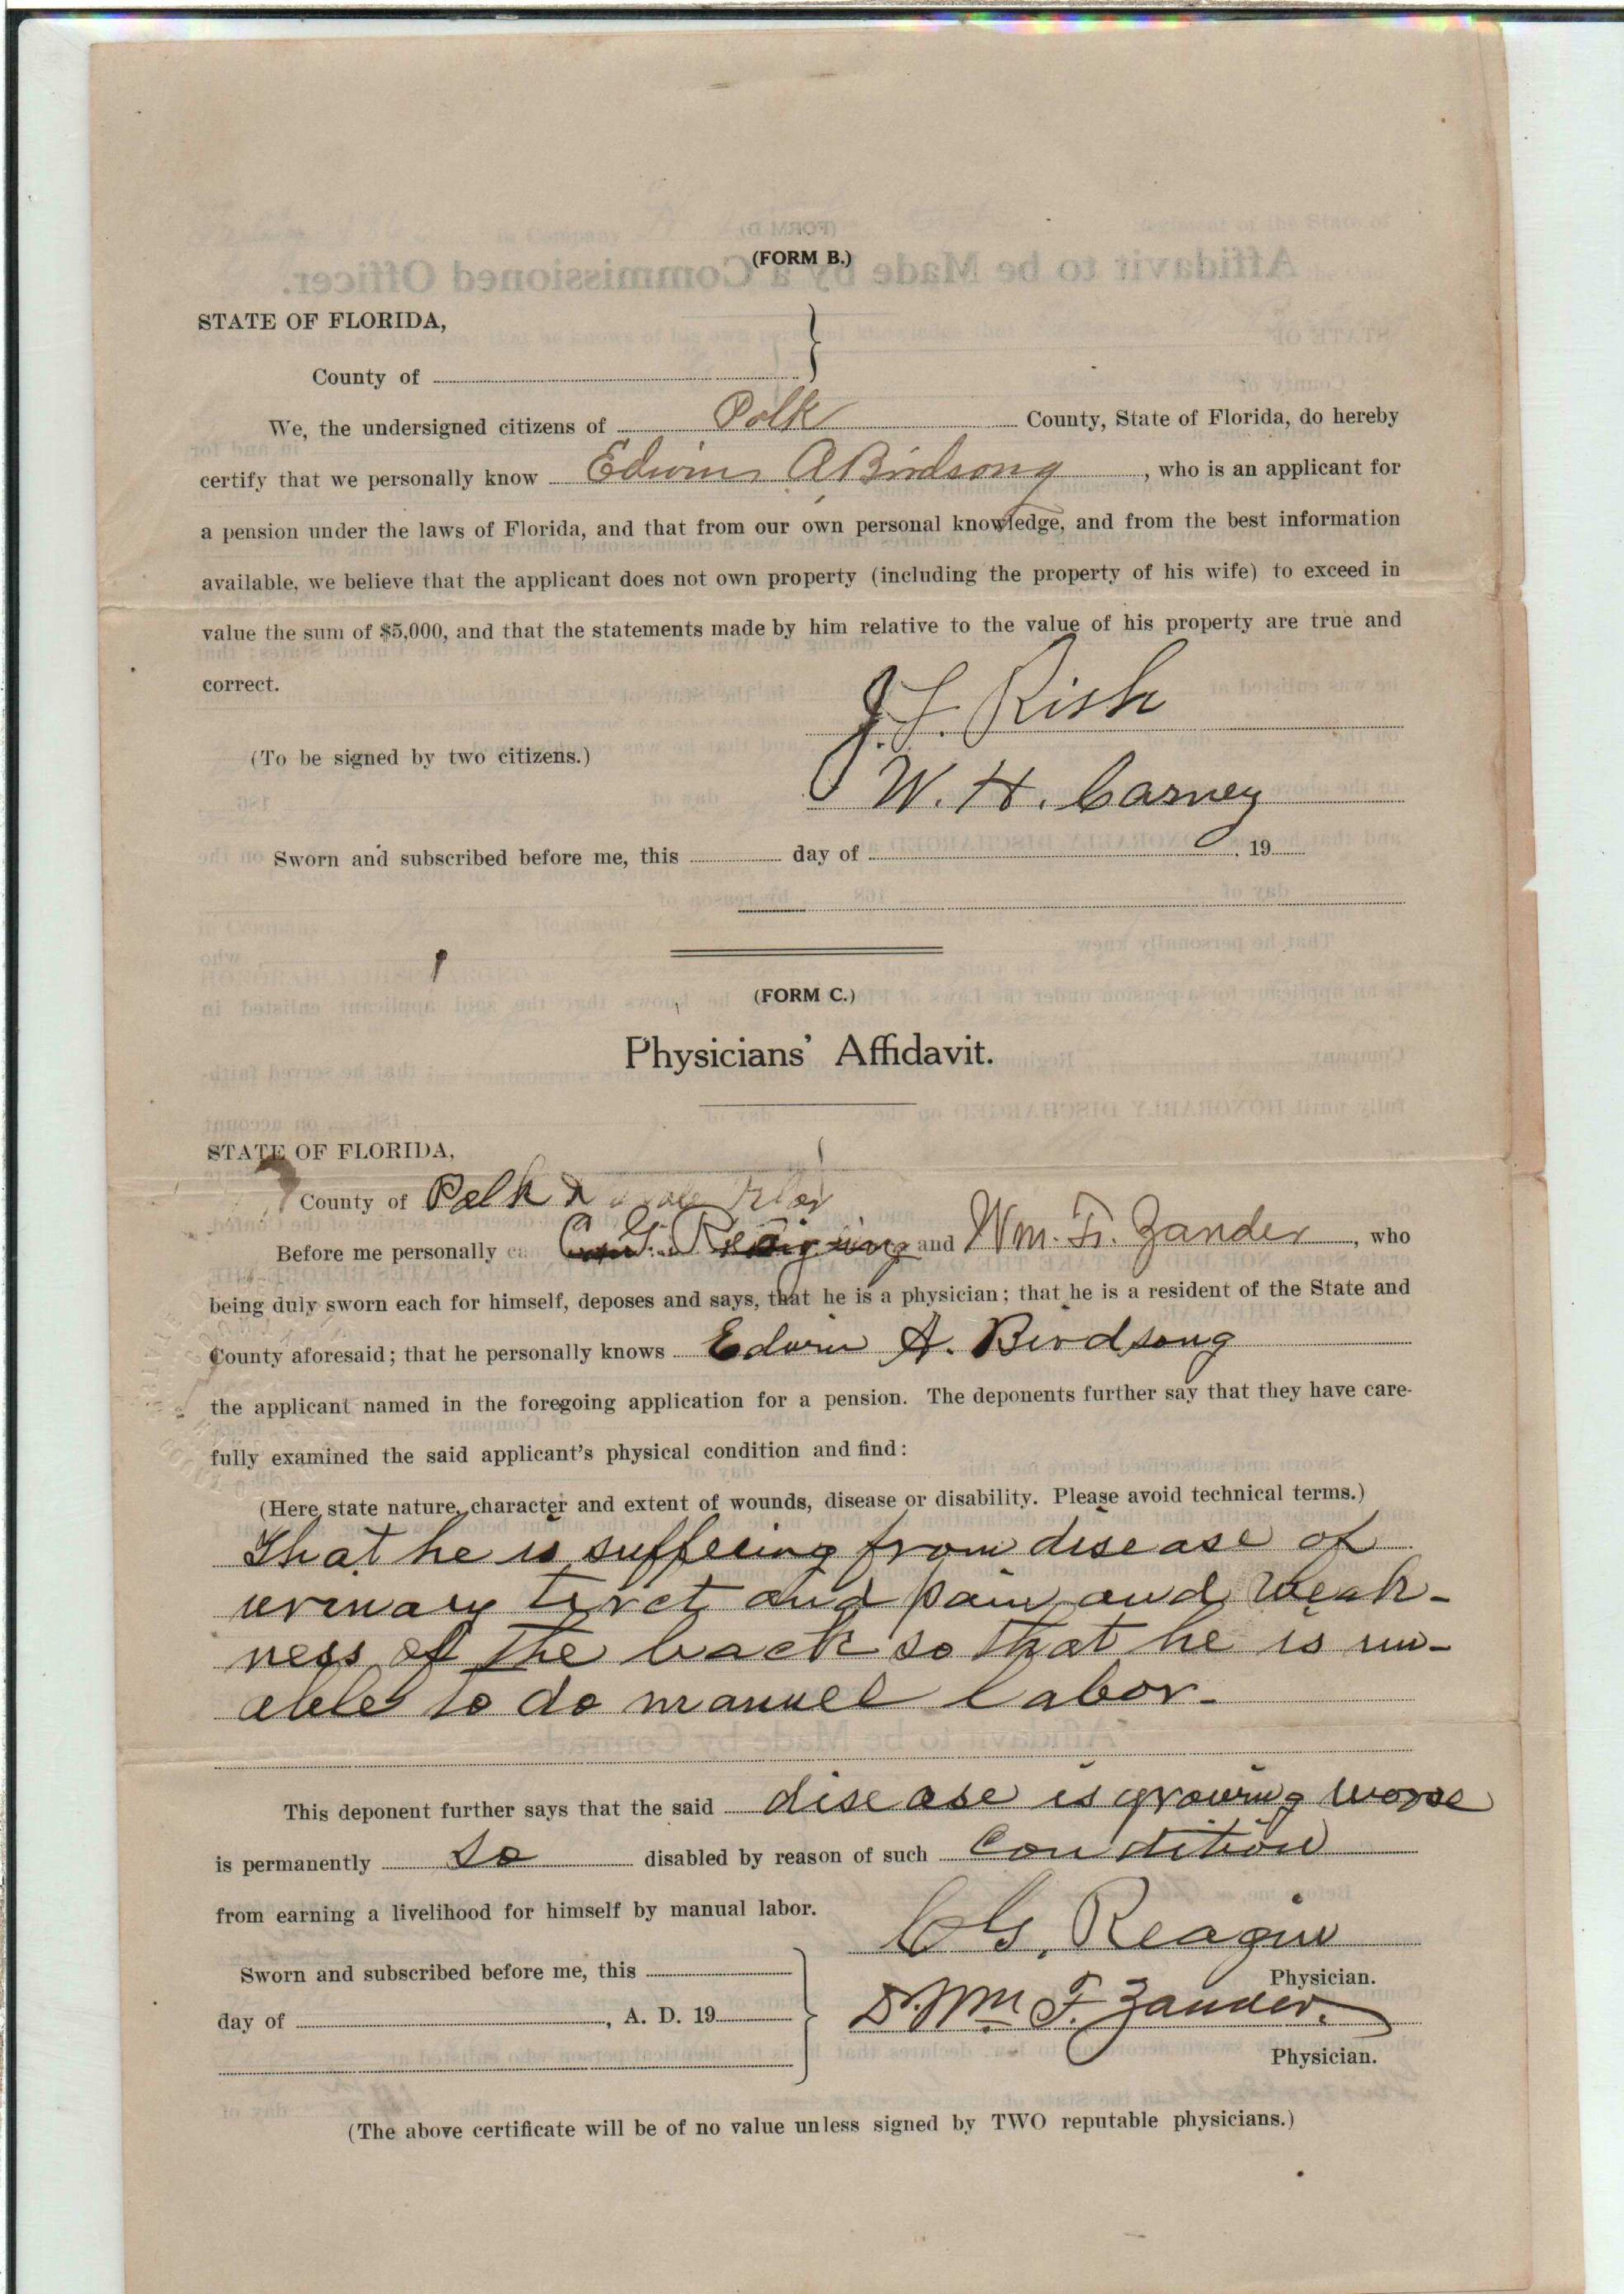 (FORM B.)
STATE OF FLORIDA,
County of
We, the undersigned citizens of Polk County, State of Florida, do hereby
certify that we personally know Edwin A Birdsong, who is an applicant for
a pension under the laws of Florida, and that from our own personal knowledge, and from the best information
available, we believe that the applicant does not own property (including the property of his wife) to exceed in
value the sum of $5,000, and that the statements made by him relative to the value of his property are true and
correct.
J. L. Rish
(To be signed by two citizens.)
W. H. Carney
Sworn and subscribed before me, this day of , 19
(FORM C.)
Physicians' Affidavit.
STATE OF FLORIDA,
County of Polk
Before me personally C. G. and Wm. F. Zander, who
being duly sworn each for himself, deposes and says, that he is a physician; that he is a resident of the State and
County aforesaid; that he personally knows Edwin A. Birdsong
the applicant named in the foregoing application for a pension. The deponents further say that they have care-
fully examined the said applicant's physical condition and find:
(Here state nature, character and extent of wounds, disease or disability. Please avoid technical terms.)
That he is suffering from disease of
urinary tirct and pain and weak-
ness of the back so that he is un-
able to do manuel labor-
This deponent further says that the said disease is growing worse
is permanently so disabled by reason of such condition
from earning a livelihood for himself by manual labor.
C G. Reagin
Physician.
Sworn and subscribed before me, this
day of , A. D. 19
Dr. Wm F. Zander.
Physician.
(The above certificate will be of no value unless signed by TWO reputable physicians.)